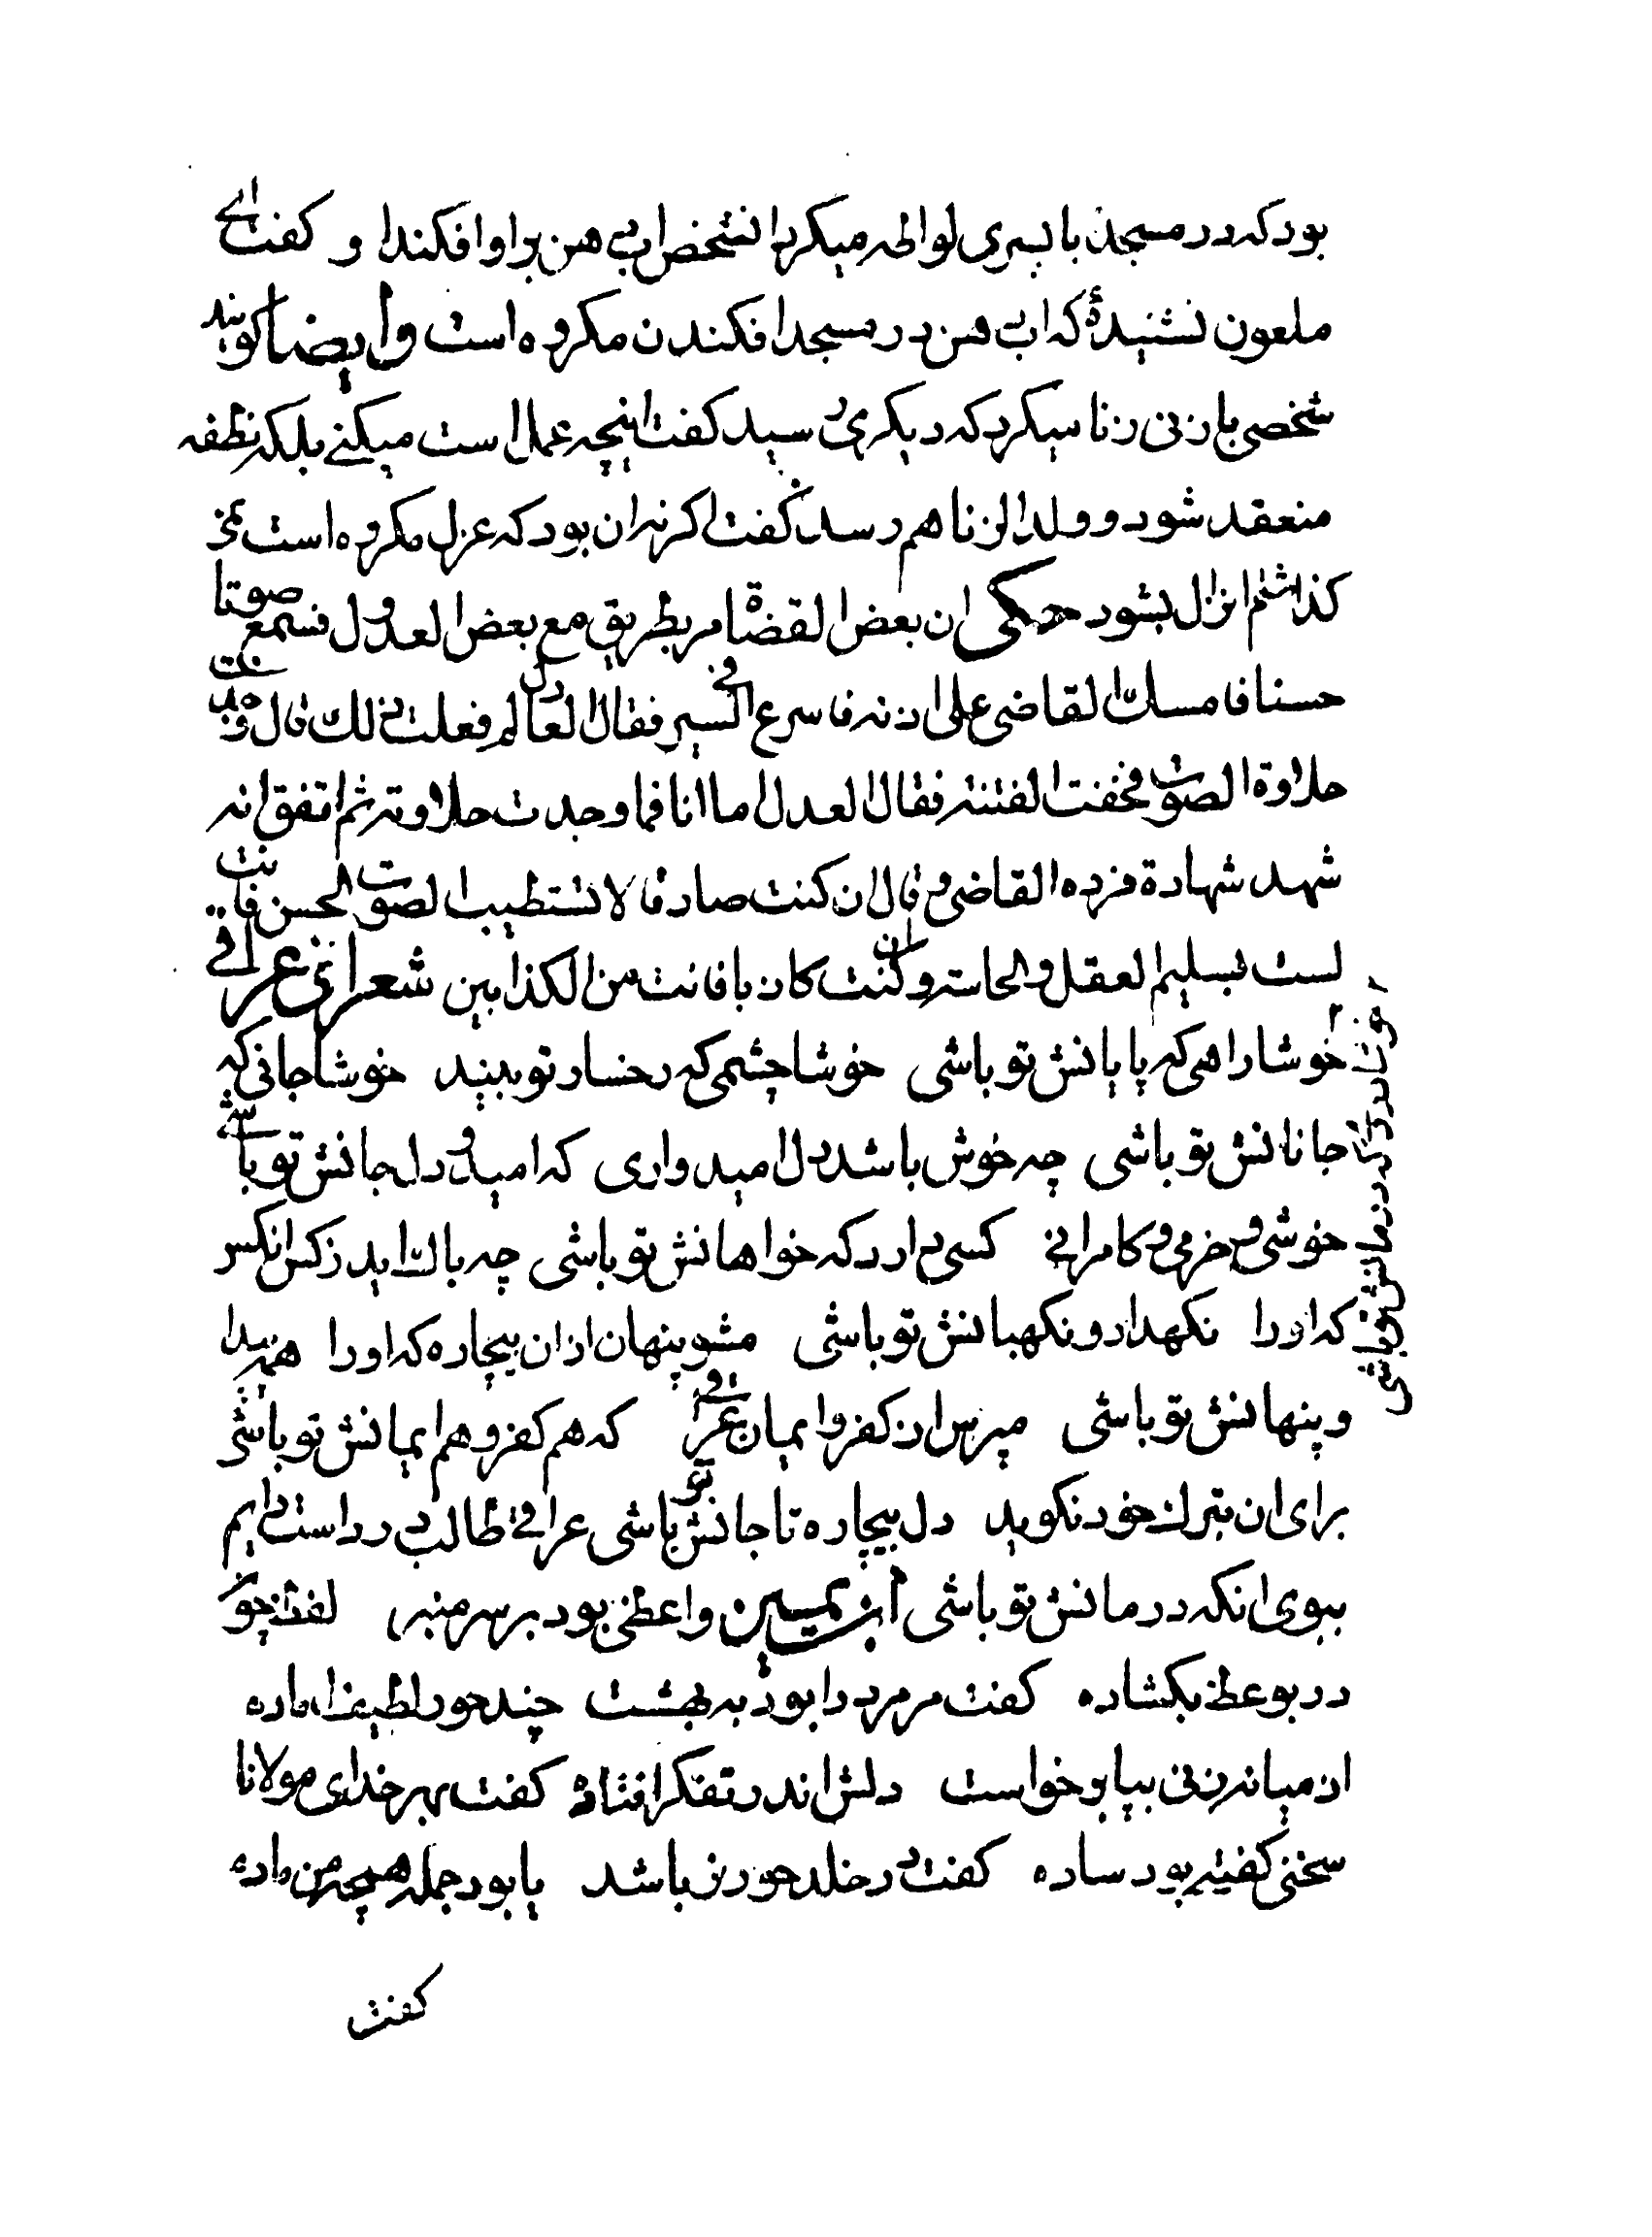 بود که در مسجد با پسری لواطه میکرد انشخص اب دهن براو افکند و کفت ای
ملعون نشنیدۀ که اب دهن در مسجد افکندن مکروه است وایضا کویند
شخصی با زنی زنا میکرد که دیکری رسید کفت اینچه عمل است میکنی بلکه نطفه
منعقد شود و ولد الزنا هم رسد کفت اکر نه ان بود که عزل مکروه است نمی
کذاشتم انزال بشود حکی ان بعض القضاة مر بطریق مع بعض العدول فسمع صوتا
حسنا فامسک القاضی علی اذنه فاسرع فی السیر فقال العادل لم فعلت ذلک قال وجدت
حلاوة الصوت فخفت الفتنه فقال العدل اما انا فما وجدت حلاوته ثم اتفق انه
شهد شهادة فرده القاضی و قال ان کنت صادقا لا تستطیب الصوت الحسن فانت
لست بسلیم العقل و الحاسه وان کنت کاذبا فانت من الکذابین شعر از عراقی
خوشا راهی که پایانش تو باشی خوشا چشمی که رخسار تو بیند خوشا جانی که
جانانش تو باشی چه خوش باشد دل امیدواری که امید دل و جانش تو باشی
خوشی و خرمی و کامرانی کسی دارد که خواهانش تو باشی چه باک اید زکس انکس
که او را نکهدار و نکهبانش تو باشی مشو پنهان از ان بیچاره که او را همه پیدا
و پنهانش تو باشی مپرس از کفر و ایمان عراقی که هم کفر و هم ایمانش تو باشی
برای ان بترک خود نکوید دل بیچاره تا جانش تو باشی عراقی طالب درد است دایم
ببوی انکه درمانش تو باشی ابن یمین واعظی بود بر سر منبر
در بوعظ بکشاده کفت مر مرد را بود به بهشت چند حور لطیف اماده
از میانه زنی بپا برخواست دلش اندر تفکر افتاده کفت بهر خدای مولانا
سخنی کفتیم بود ساده کفت در خلد حور نر باشد یا بود جمله همچو من ماده
کفت